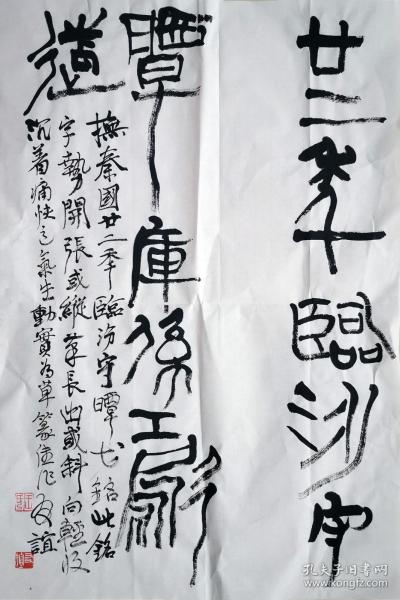 廿二年十臨汾守
瞫庫係工歇
造
撫秦國廿二年臨汾守瞫戈銘此銘
字勢開張或縱筆長出或斜向輕收
沉着痛快之氣生動實為草篆佳作 友誼
孔夫子旧书网
www.kongfz.com